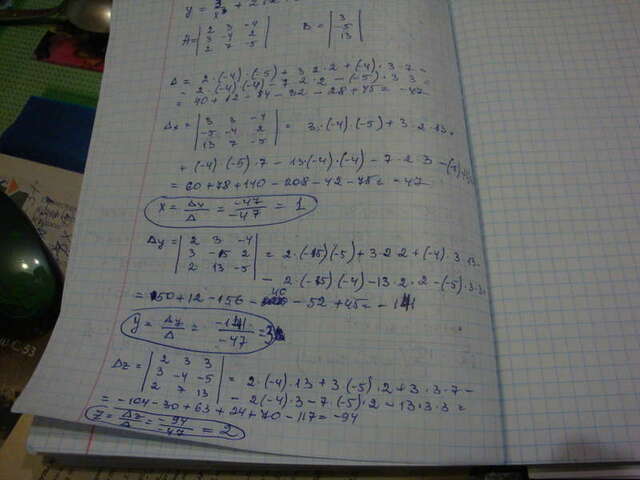 A = | 2 3 -4 | B = | 3 |
| 3 -4 2 | | -5 |
| 2 7 -5 | | 13 |
Δ = 2·(-4)·(-5) + 3·2·2 + (-4)·3·7 -
- 2·(-4)(-4) - 7·2·2 - (-5)·3·3 =
= 40 + 12 - 84 - 32 - 28 + 45 = -47
Δx = | 3 3 -4 |
| -5 -4 2 | = 3·(-4)·(-5) + 3·2·13 +
| 13 7 -5 |
+ (-4)·(-5)·7 - 13·(-4)·(-4) - 7·2·3
= 60 + 78 + 140 - 208 - 42 - 75 = -47
x = Δx/Δ = -47/-47 = 1
Δy = | 2 3 -4 |
| 3 -5 2 | = 2·(-5)(-5) + 3·2·2 + (-4)·3·13 -
| 2 13 -5 |
- 2·(-5)(-4) - 13·2·2 - (-5)·3·3
= 50 + 12 - 156 - 40 - 52 + 45 = -141
y = Δy/Δ = -141/-47 = 3
Δz = | 2 3 3 |
| 3 -4 -5 | = 2·(-4)·13 + 3·(-5)·2 + 3·3·7 -
| 2 7 13 |
- 2(-4)·3 - 7·(-5)·2 - 13·3·3 =
= -104 - 30 + 63 + 24 + 70 - 117 = -94
z = Δz/Δ = -94/-47 = 2